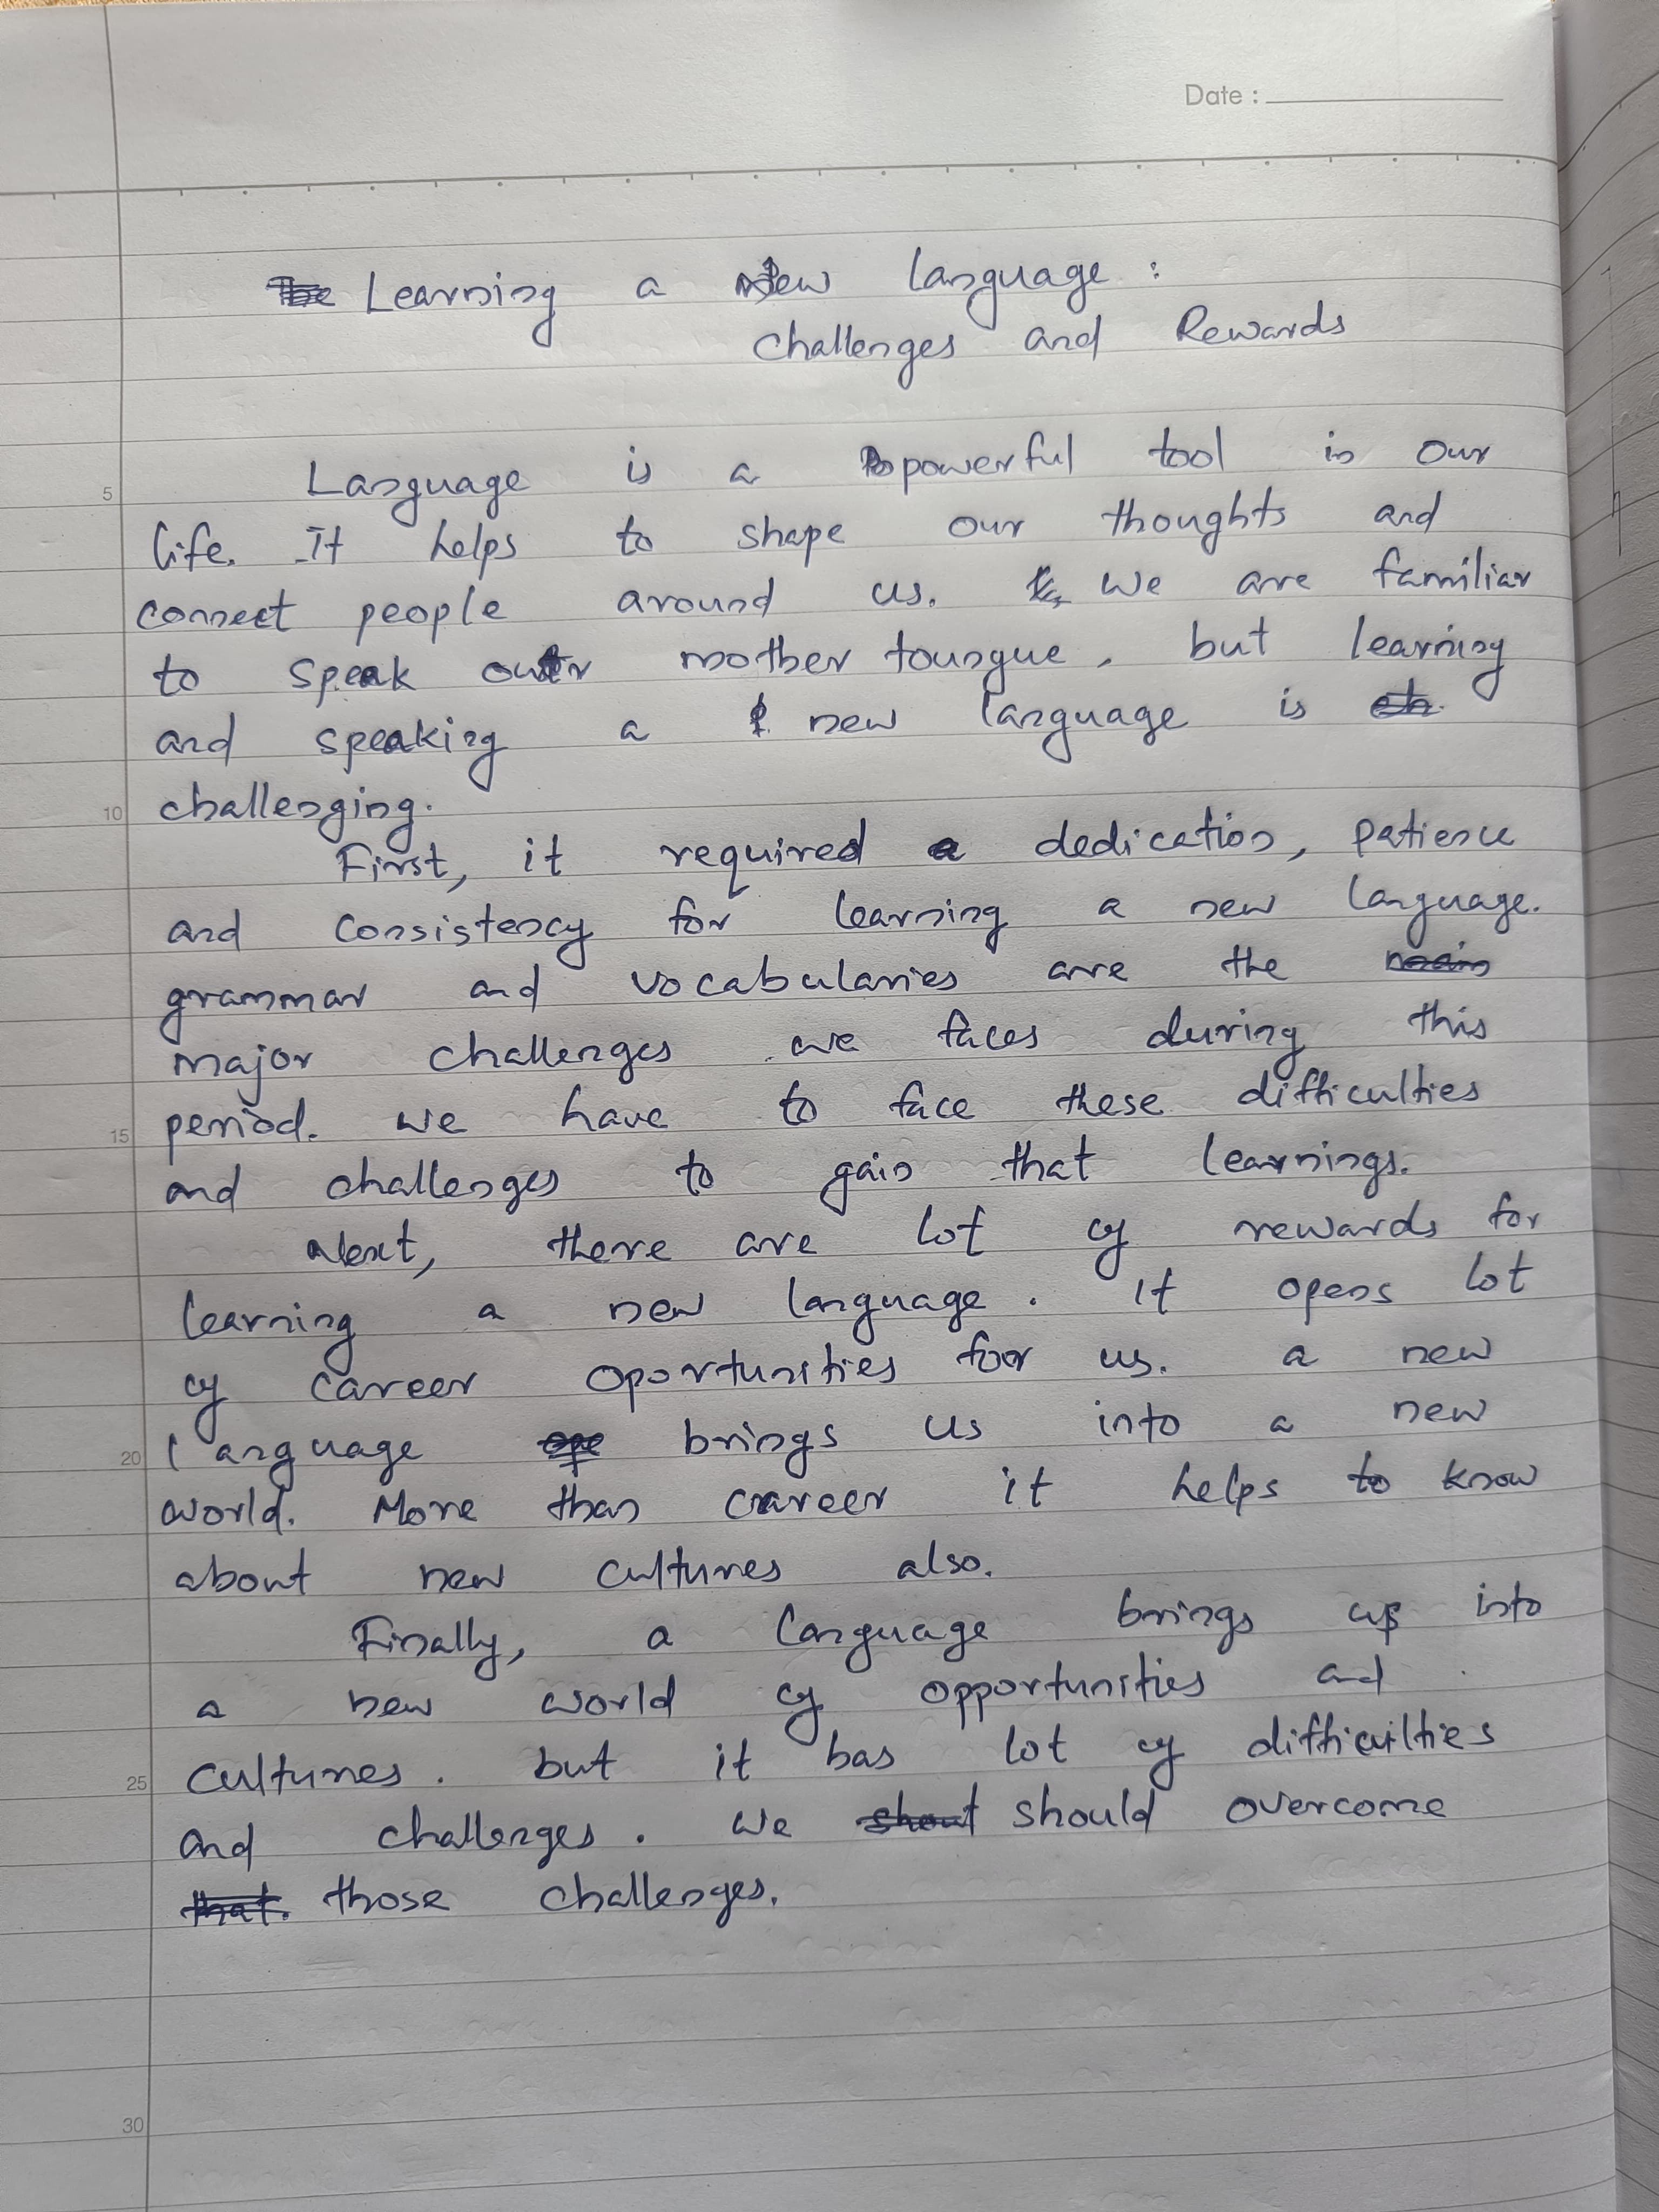 Date :
Learning a New language :
challenges and Rewards
Language is a powerful tool in our
5
life. It helps to shape our thoughts and
connect people around us. We are familiar
to speak our mother toungue, but learning
and speaking a new language is
10 challenging.
First, it required a dedication, patience
and consistency for learning a new language.
grammar and vocabularies are the
major challenges we faces during this
15 period. we have to face these difficulties
and challenges to gain that learnings.
Next, there are lot of rewards for
learning a new language. It opens lot
of career oportunities for us. a new
20 language brings us into a new
world. More than career it helps to know
about new cultures also.
Finally, a language brings us into
a new world of opportunities and
25 cultures. but it has lot of difficulties
and challenges. we should overcome
those challenges.
30